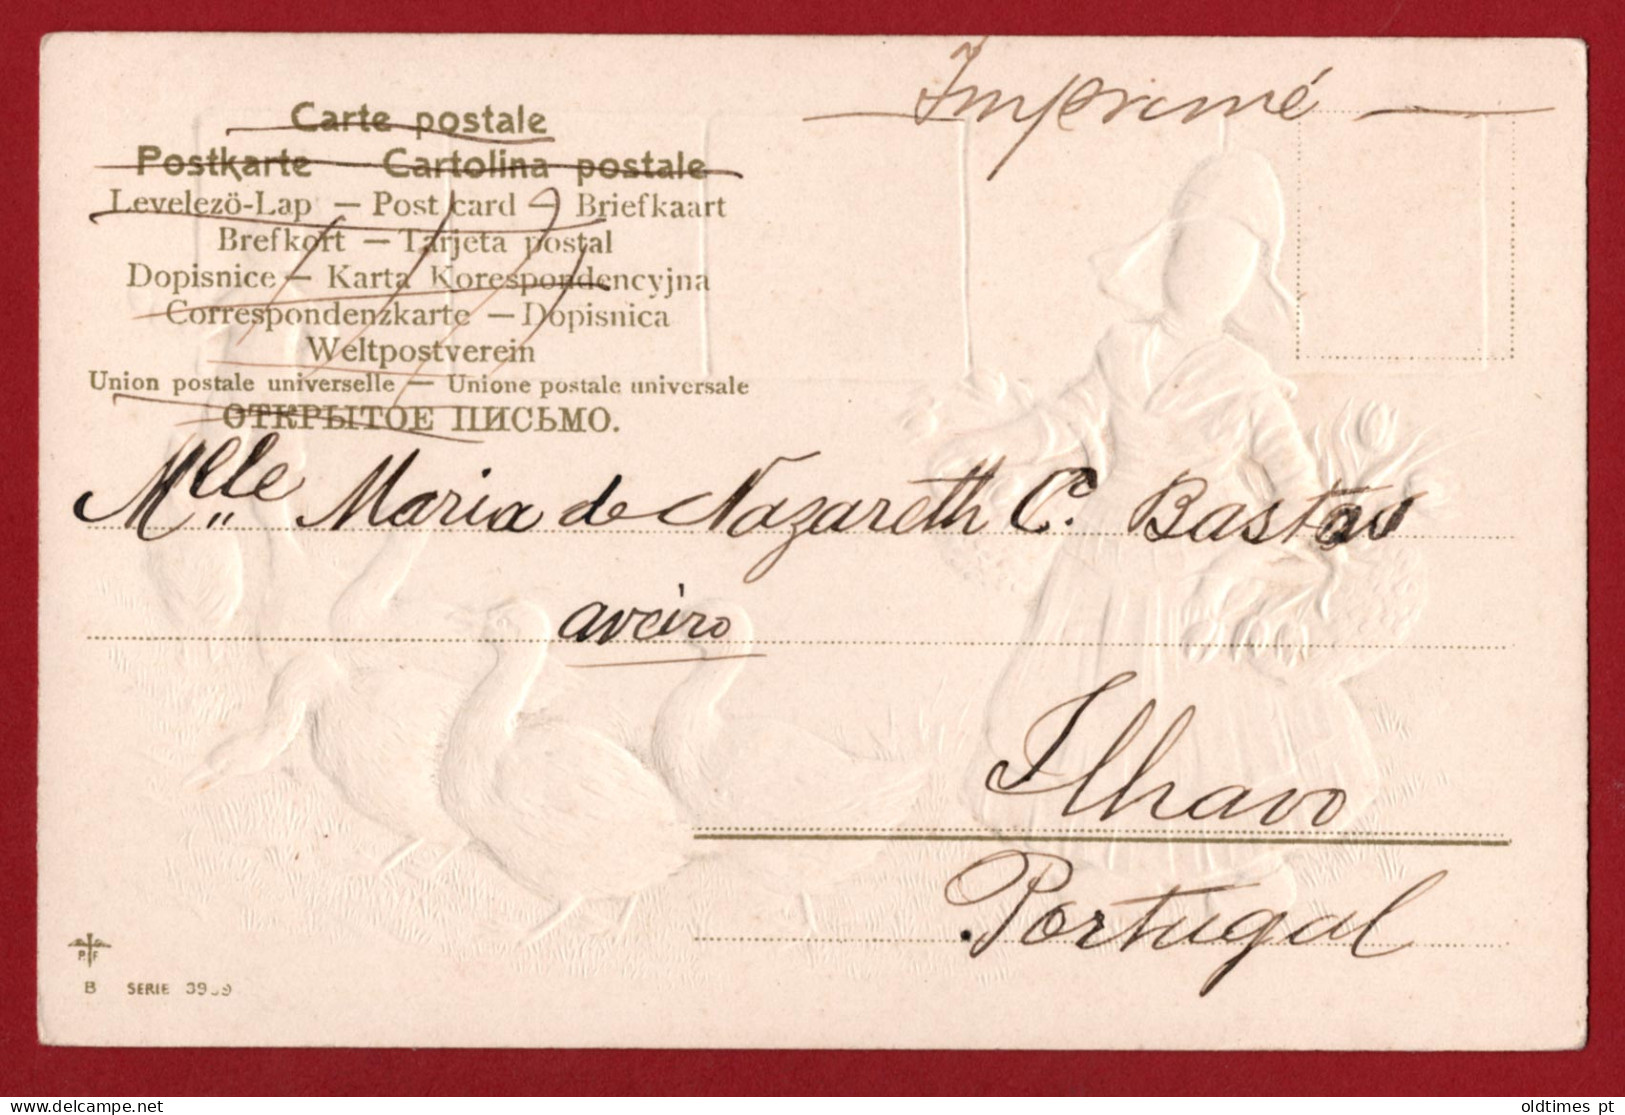 Imprimé
Carte postale
Postkarte Cartolina postale
Levelező-Lap — Post card — Briefkaart
Brefkort — Tarjeta postal
Dopisnice — Karta Korespondencyjna
Correspondenzkarte — Dopisnica
Weltpostverein
Union postale universelle — Unione postale universale
ОТКРЫТОЕ ПИСЬМО.
Mlle Maria de Nazareth C. Bastos
aveiro
Ilhavo
Portugal
P. F
B SERIE 39
oldtimes pt